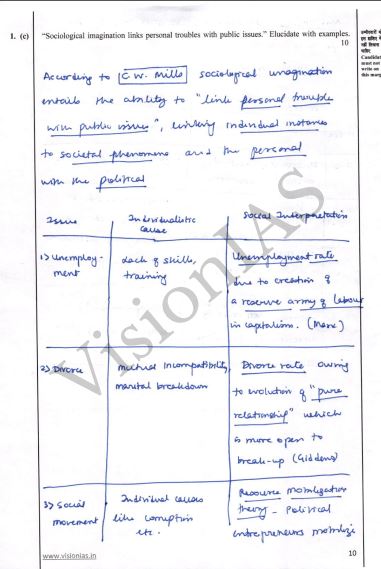 1. (c) "Sociological imagination links personal troubles with public issues." Elucidate with examples.
10
According to C.W. Mills sociological imagination
entails the ability to "link personal trouble
with public issues", linking individual instances
to societal phenomena and the personal
with the political
Issue
Individualistic cause
Social Interpretation
1) Unemploy-
ment
Lack of skills,
training
Unemployment rate
due to creation of
a reserve army of labour
in capitalism. (Marx)
2) Divorce
mutual incompatibility,
marital breakdown
Divorce rate owing
to evolution of "pure
relationship" which
is more open to
break-up (Giddens)
3) Social
movement
Individual causes
like corruption
etc.
Resource mobilization
theory - Political
entrepreneurs mobilize
VisionIAS
www.visionias.in
10
Candidate
must not
write on
this margin